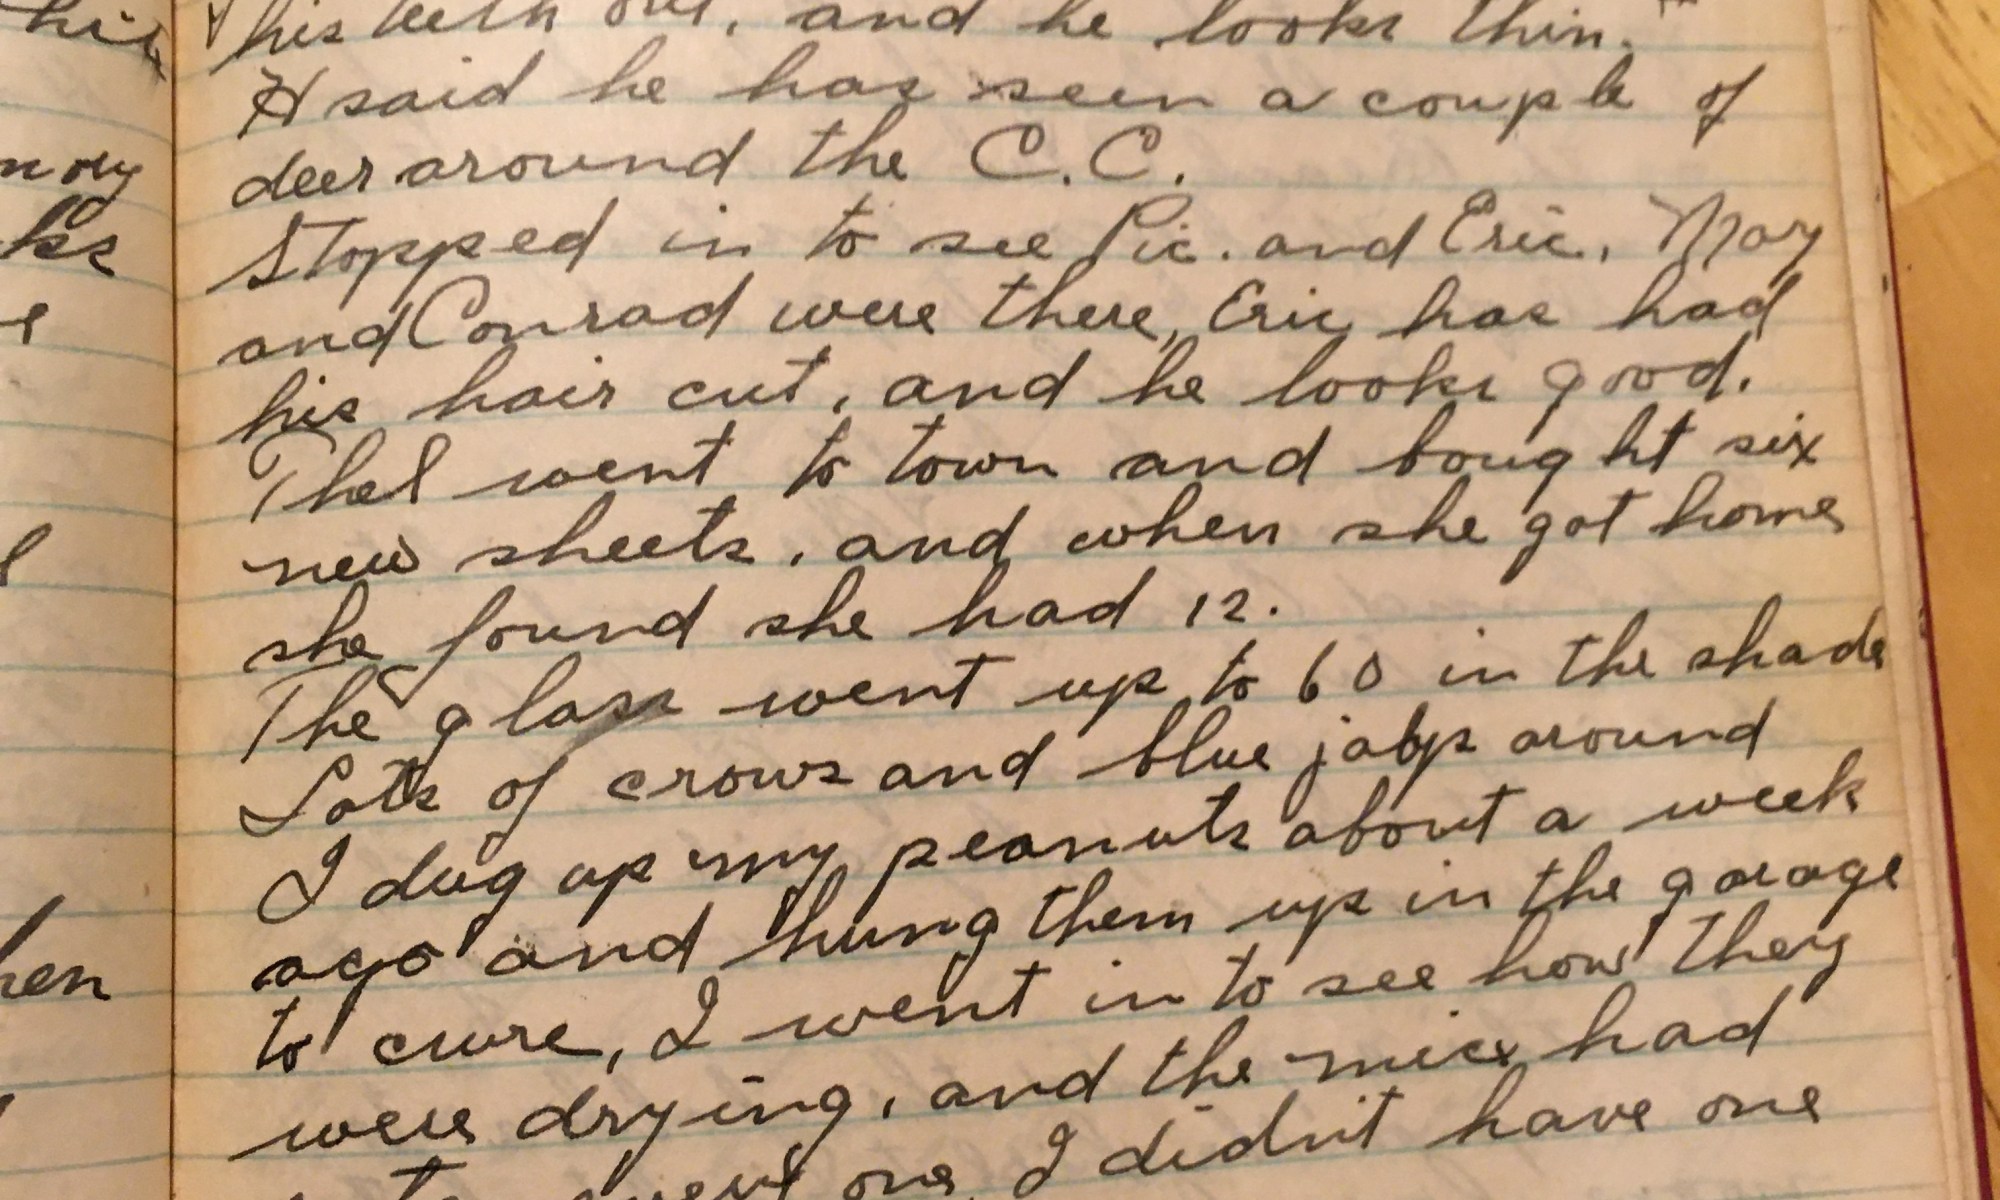 his teeth out, and he looks thin.
H said he has seen a couple of
deer around the C.C.
Stopped in to see Pic. and Eric, May
and Conrad were there, Eric has had
his hair cut, and he looks good.
Thel went to town and bought six
new sheets, and when she got home
she found she had 12.
The glass went up to 60 in the shade
Lots of crows and blue jays around
I dug up my peanuts about a week
ago and hung them up in the garage
to cure, I went in to see how they
were drying, and the mice had
every one, I didn't have one